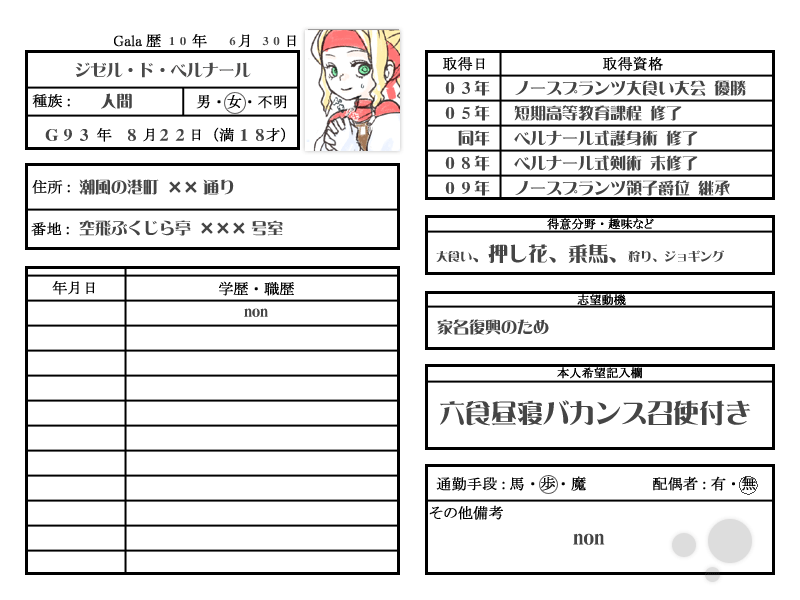 Gala 歴 10年 6月 30日
ジゼル・ド・ベルナール
種族： 人間 男・女・不明
G93年 8月22日（満18才）
住所： 潮風の港町 ×× 通り
番地： 空飛ぶくじら亭 ××× 号室
年月日 学歴・職歴
non
取得日 取得資格
03年 ノースプランツ大食い大会 優勝
05年 短期高等教育課程 修了
同年 ベルナール式護身術 修了
08年 ベルナール式剣術 未修了
09年 ノースプランツ領子爵位 継承
得意分野・趣味など
大食い、押し花、乗馬、狩り、ジョギング
志望動機
家名復興のため
本人希望記入欄
六食昼寝バカンス召使付き
通勤手段：馬・歩・魔 配偶者：有・無
その他備考
non